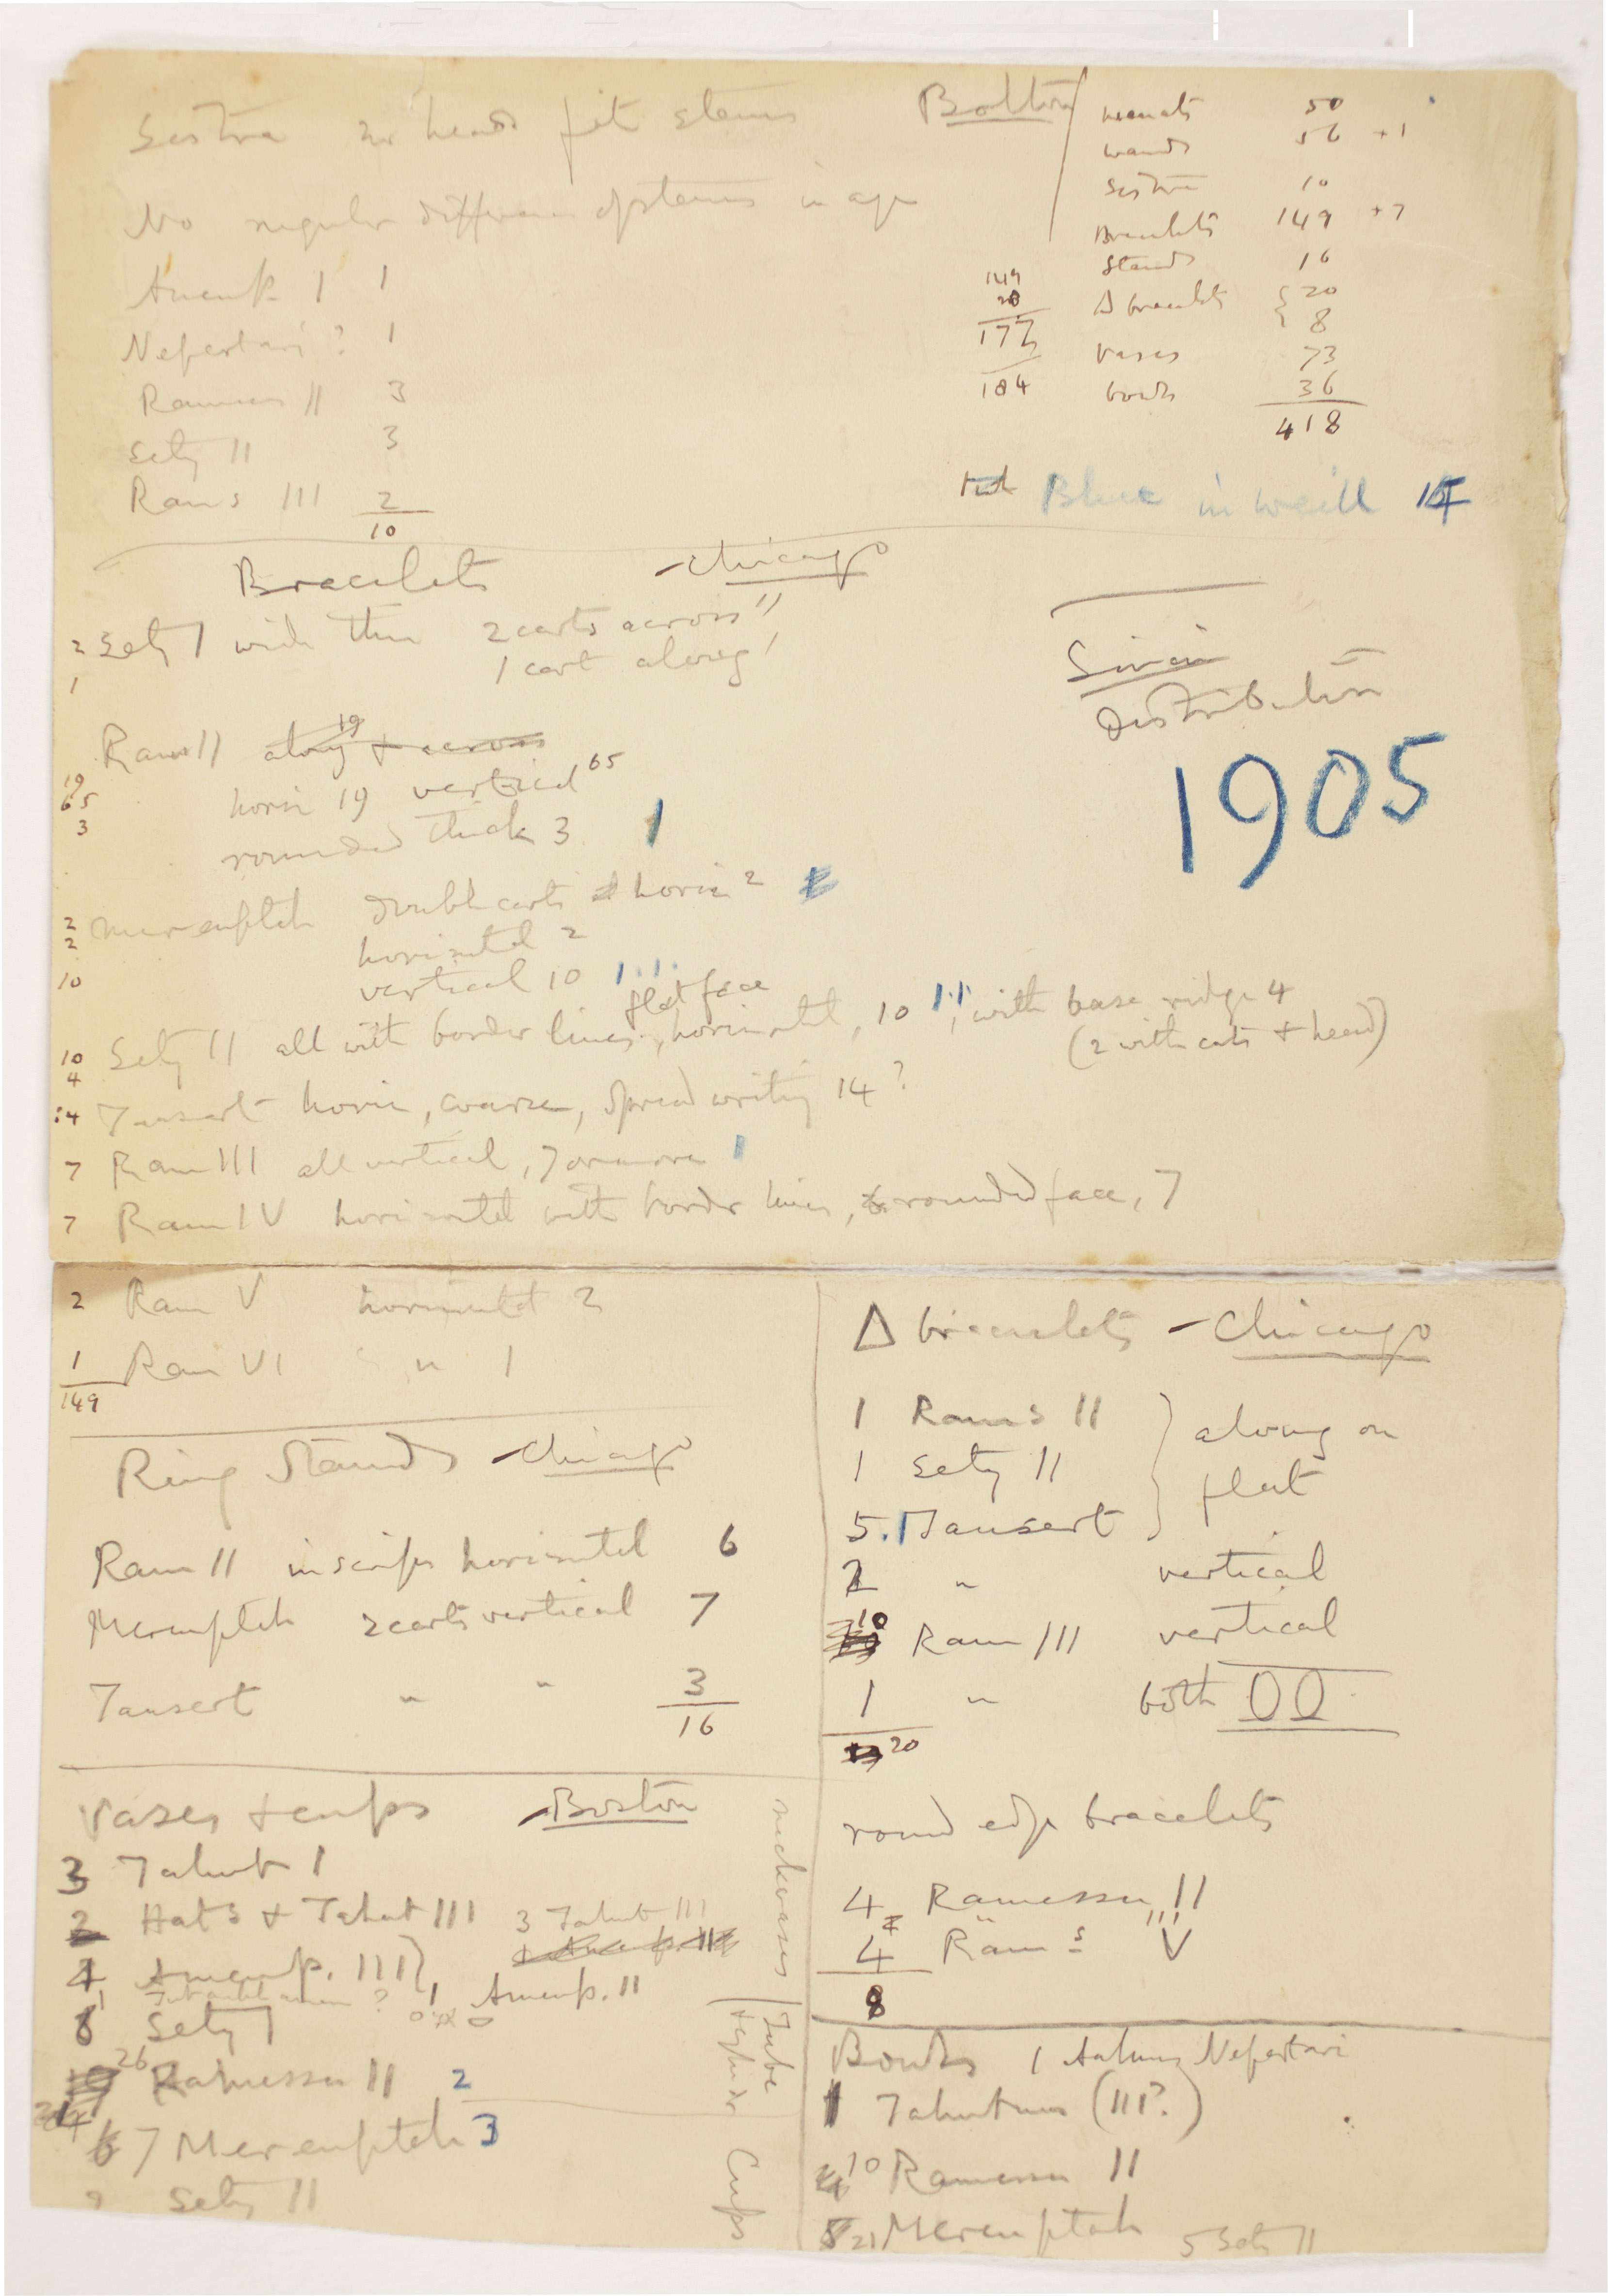 Sistra no heads fit stems
No regular difference of stems in age
Amenhp. I 1
Nefertari ? 1
Ramses II 3
Sety II 3
Rams III 2
10
Bolton
menats 50
wands 56 +1
Sistra 10
Bracelets 149 +7
Stands 16
Δ bracelets { 20
{ 8
vases 73
bowls 36
418
149
28
177
184
Blue in weill
Bracelets - Chicago
2 Sety I wide thin 2 carts across II
1 1 cart along I
Rams II along 19 + across
19 horiz 19 vertical 65
65
3 rounded thick 3
2 Merenptah double carts horiz 2
2 horizontal 2
10 vertical 10
flat face
10 Sety II all with border lines, horizontal, 10, with base ridge 4
4 (2 with carts + head)
14 Tausert horiz, coarse, spread writing 14 ?
7 Ram III all vertical, 7 or more
7 Ram IV horizontal with border lines, rounded face, 7
Sinai
Distribution
1905
2 Ram V horizontal 2
1 Ram VI " 1
149
Ring Stands - Chicago
Ram II inscrips horizontal 6
Merenptah 2 carts vertical 7
Tausert " " 3
16
Vases + cups - Boston
3 Tahut I
2 Hats + Tahut III 3 Tahut III
Amenhp. III } 1 Amenhp. II
8 Sety I
26 Ramessu II 2
7 Merenptah 3
Sety II
neck vases
Tube
Cups
Δ bracelets - Chicago
1 Rams II } along on
1 Sety II } flat
5 Tausert }
2 " vertical
10 Ram III vertical
1 " both
20
round edge bracelets
4 Ramessu III
4 Rams V
8
Bowls 1 Aahmes Nefertari
1 Tahutmes (III?)
10 Ramessu II
21 Merenptah 5 Sety II